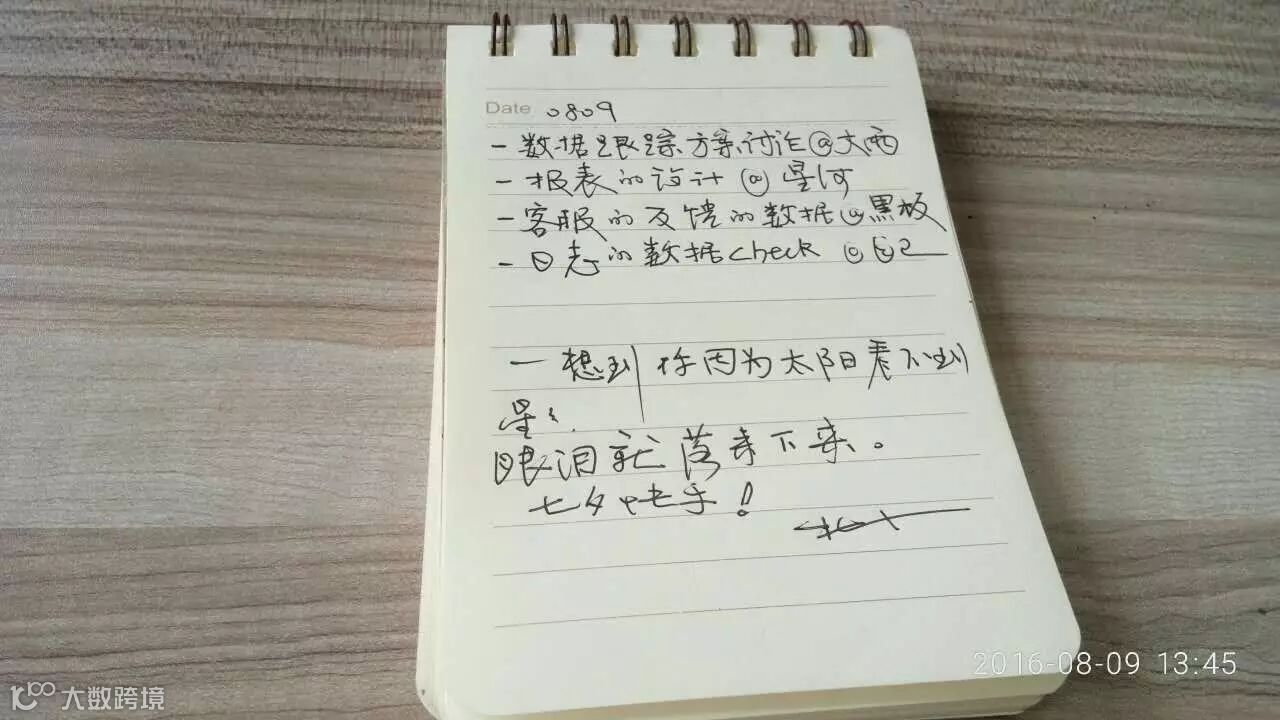 Date 0809
- 数据跟踪方案讨论@大雨
- 报表的设计@星河
- 客服的反馈的数据@黑板
- 日志的数据check @自己
一想到你因为太阳看不到
星星.
眼泪就落来下来。
七夕快乐!
2016-08-09 13:45
大数跨境